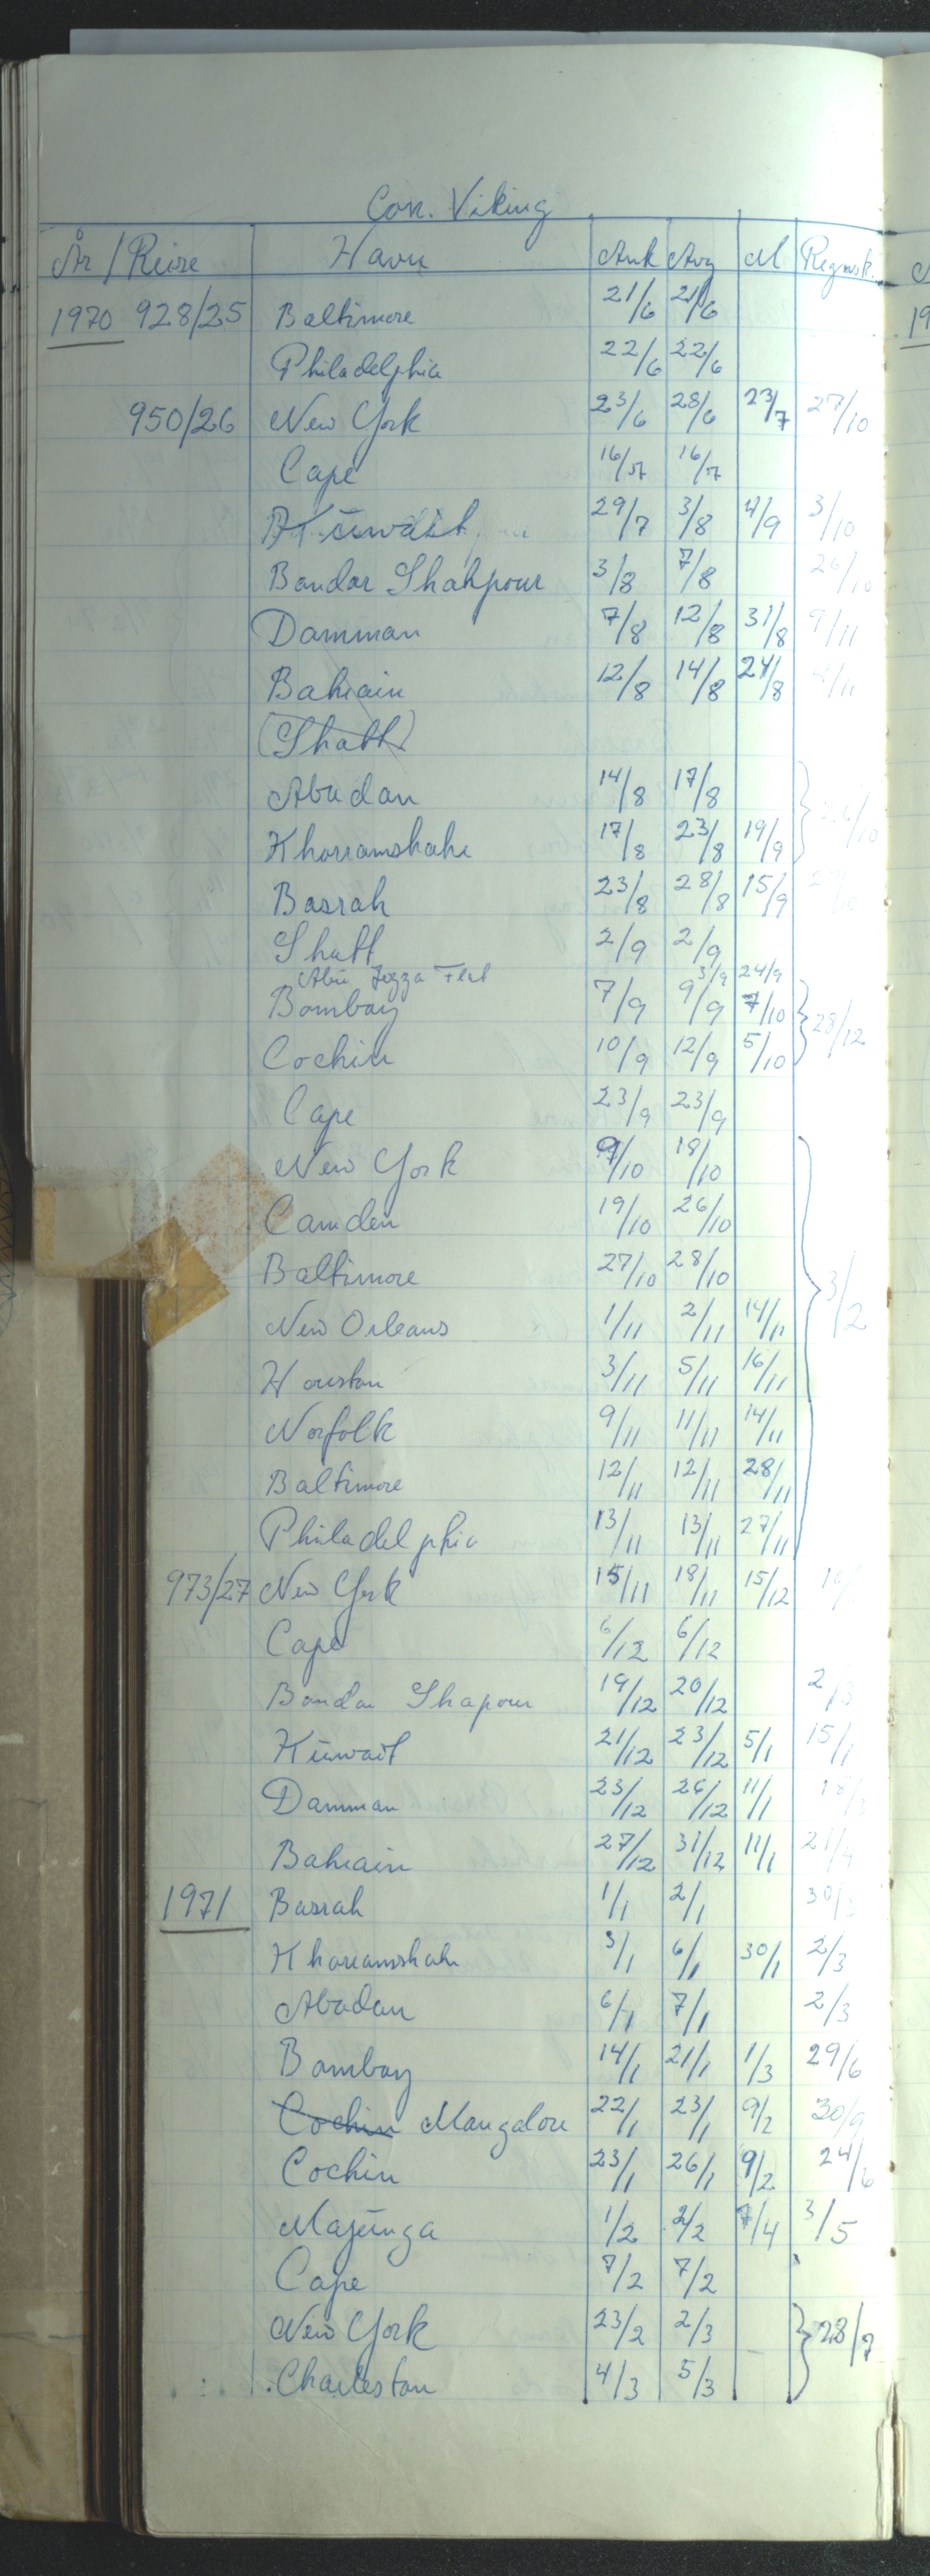 Con. Viking
År / Reise Havn Ank Avg M Regnsk.
1970 928/25 Baltimore 21/6 21/6
Philadelphia 22/6 22/6
950/26 New York 23/6 28/6 23/7 27/10
Cape 16/7 16/7
Kuwait 29/7 3/8 4/9 3/10
Bandar Shahpour 3/8 7/8 26/10
Damman 7/8 12/8 31/8 9/11
Bahrain 12/8 14/8 24/8
(Shatt)
Abadan 14/8 17/8
Khorramshahr 17/8 23/8 19/9
Basrah 23/8 28/8 15/9
Shatt 2/9 2/9
Abu Flat 3/9 24/9
Bombay 7/9 9/9 7/10
28/12
Cochin 10/9 12/9 5/10
Cape 23/9 23/9
New York 9/10 18/10
Camden 19/10 26/10
Baltimore 27/10 28/10
3/2
New Orleans 1/11 2/11 14/11
Houston 3/11 5/11 16/11
Norfolk 9/11 11/11 14/11
Baltimore 12/11 12/11 28/11
Philadelphia 13/11 13/11 27/11
973/27 New York 15/11 18/11 15/12
Cape 6/12 6/12
Bandar Shapour 19/12 20/12 2/3
Kuwait 21/12 23/12 5/1 15/1
Damman 23/12 26/12 11/1 18/3
Bahrain 27/12 31/12 11/1 21/4
1971 Basrah 1/1 2/1 30/3
Khorramshahr 3/1 6/1 30/1 2/3
Abadan 6/1 7/1 2/3
Bombay 14/1 21/1 1/3 29/6
Cochin Mangalore 22/1 23/1 9/2 30/9
Cochin 23/1 26/1 9/2 24/6
Majunga 1/2 2/2 7/4 3/5
Cape 7/2 7/2
New York 23/2 2/3
28/7
Charleston 4/3 5/3